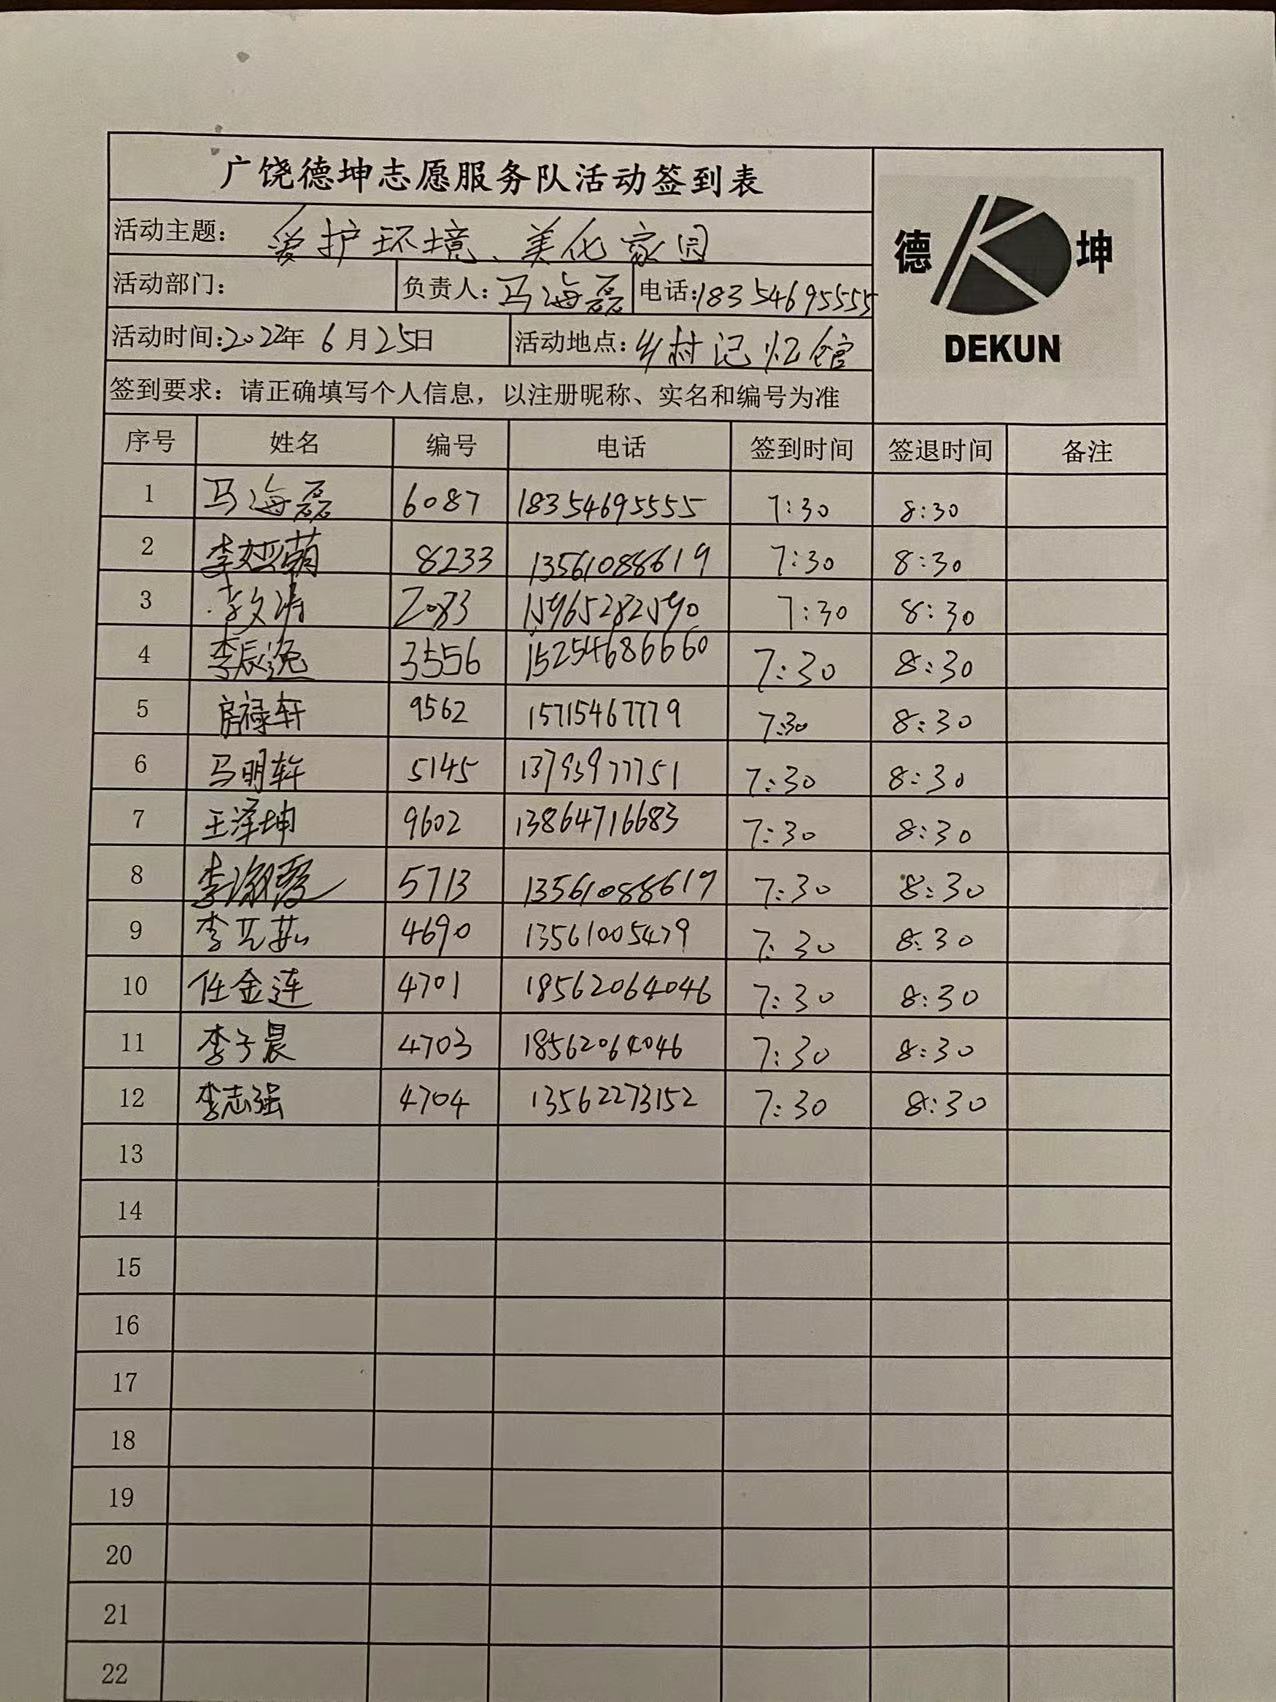 广饶德坤志愿服务队活动签到表
德 坤
DEKUN
活动主题： 爱护环境、美化家园
活动部门： 负责人：马海磊 电话：18354695555
活动时间：2022年6月25日 活动地点：乡村记忆馆
签到要求：请正确填写个人信息，以注册昵称、实名和编号为准
序号 姓名 编号 电话 签到时间 签退时间 备注
1 马海磊 6087 18354695555 7:30 8:30
2 李娅萌 8233 13561088619 7:30 8:30
3 李文涛 2083 15965282590 7:30 8:30
4 李辰逸 3556 15254686660 7:30 8:30
5 房禄轩 9562 15715467779 7:30 8:30
6 马明轩 5145 13793977751 7:30 8:30
7 王泽坤 9602 13864716683 7:30 8:30
8 李 5713 13561088619 7:30 8:30
9 李艺茹 4690 13561005479 7:30 8:30
10 任金连 4701 18562064046 7:30 8:30
11 李子晨 4703 18562064046 7:30 8:30
12 李志强 4704 13562273152 7:30 8:30
13
14
15
16
17
18
19
20
21
22